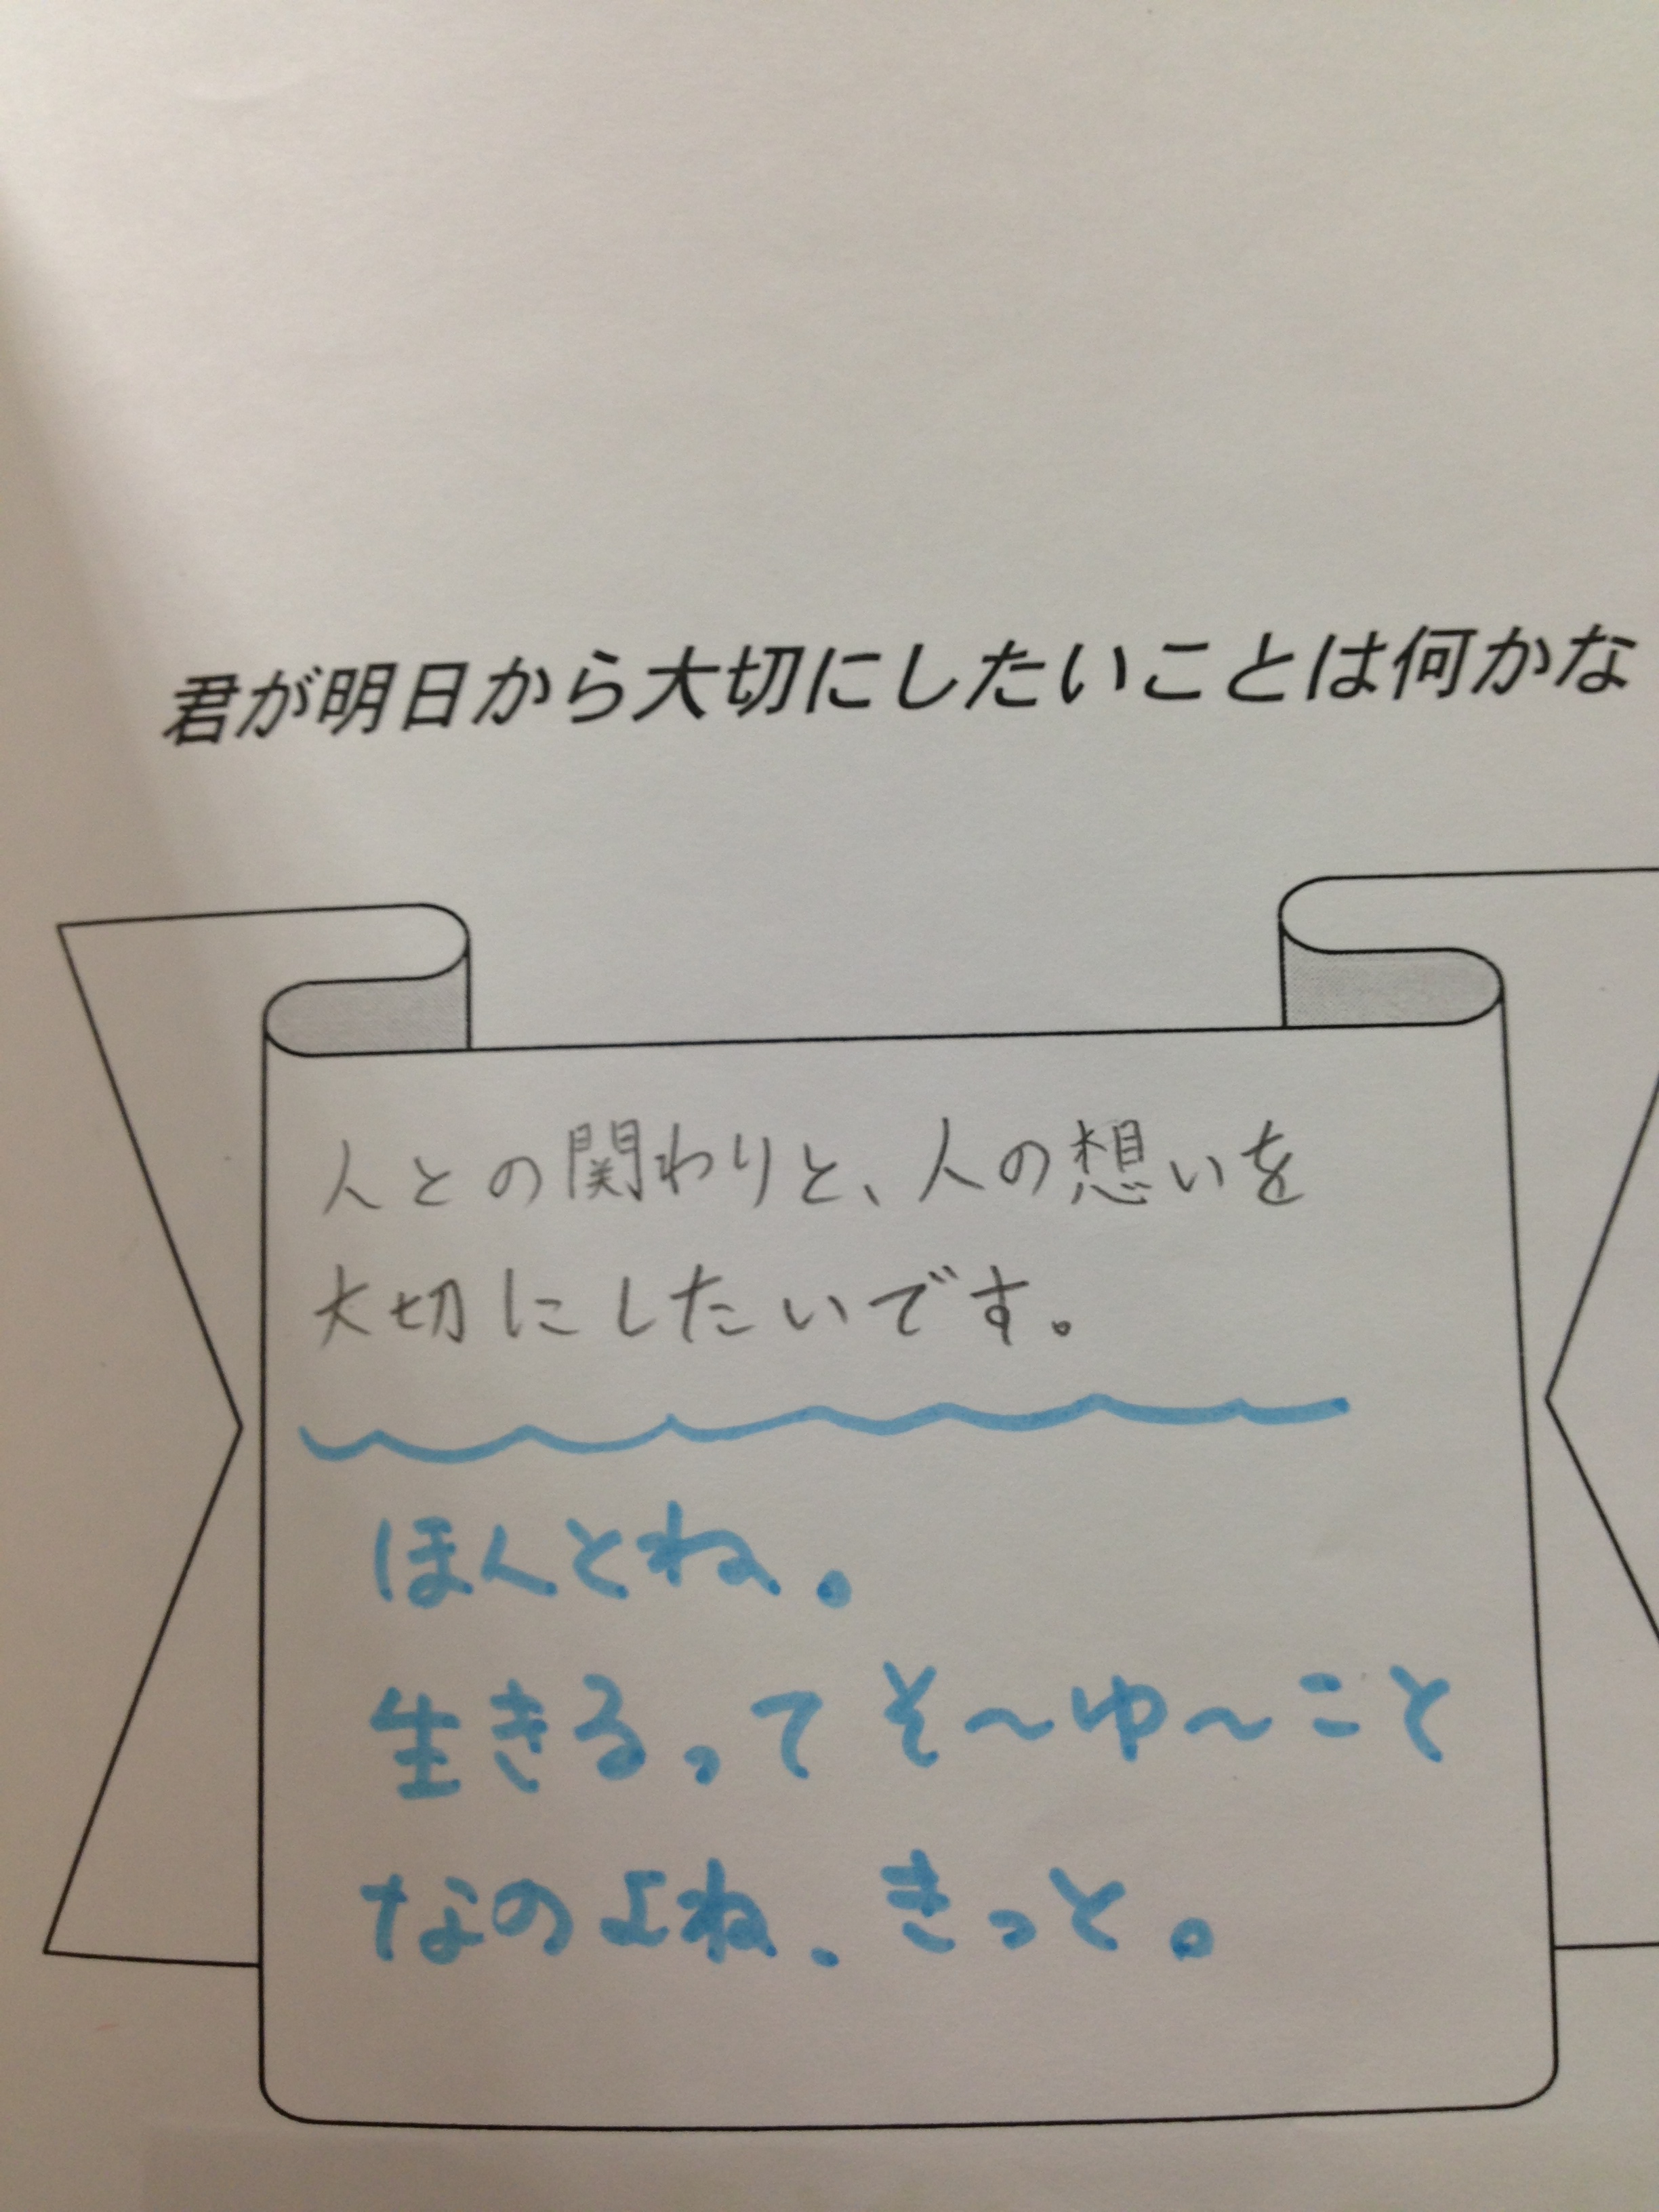 君が明日から大切にしたいことは何かな
人との関わりと、人の想いを
大切にしたいです。
ほんとね。
生きるってそ～ゆ～こと
なのよね、きっと。